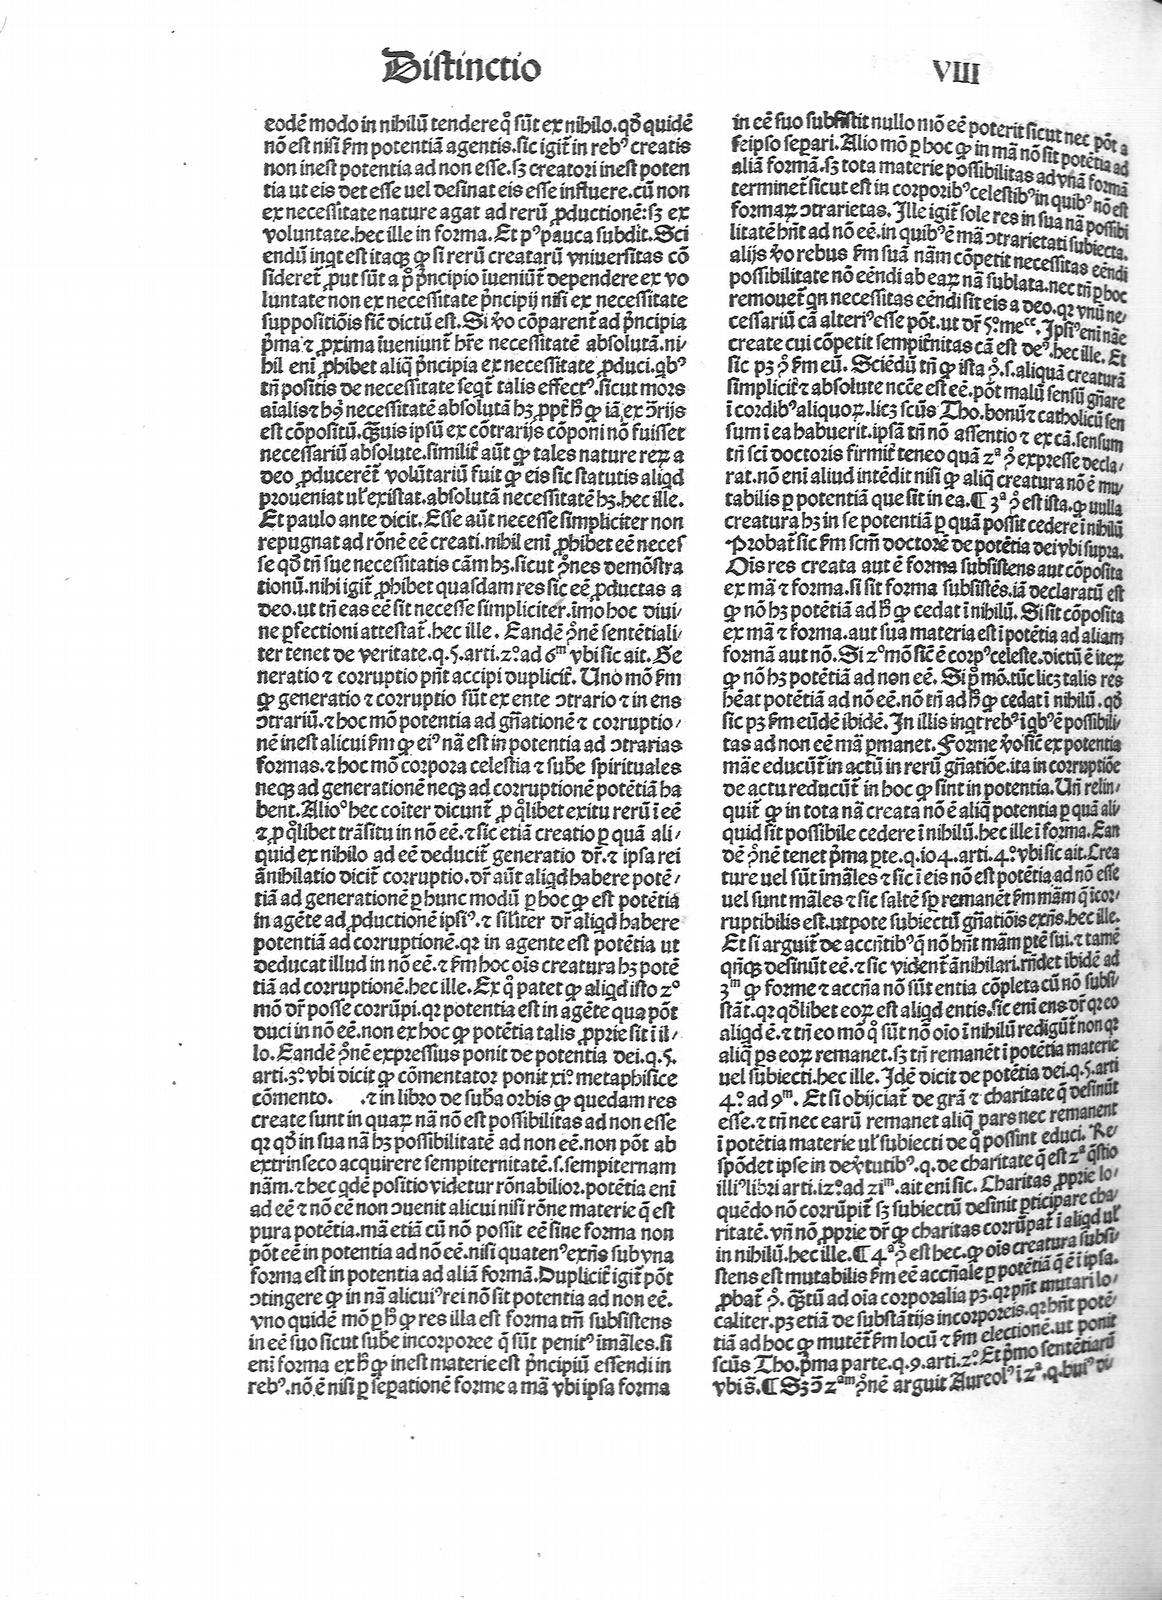 Distinctio
VIII
eodē modo in nihilū tendere q̄ sūt ex nihilo. qd̄ quidē
nō est nisi ẜm potentiā agentis. sic igit̄ in rebꝰ creatis
non inest potentia ad non esse. sꝫ creatori inest poten
tia ut eis det esse uel desinat eis esse influere. cū non
ex necessitate nature agat ad rerū ꝓductionē: sꝫ ex
voluntate. hec ille in forma. Et pꝰ pauca subdit. Sci
endū inqt est itaqꝫ ꝙ si rerū creatarū vniuersitas cō
sideret̄ ꝓut sūt a p̄ p̄ncipio īueniūt̄ dependere ex vo
luntate non ex necessitate p̄ncipij nisi ex necessitate
suppositiōis sic̄ dictū est. Si v̄o cōparent̄ ad p̄ncipia
p̄ma ⁊ ꝓxima īueniunt̄ hr̄e necessitatē absolutā. ni/
hil eni ꝓhibet aliq̄ p̄ncipia ex necessitate ꝓduci. qbꝰ
tn̄ positis de necessitate seqt̄ talis effectꝰ. sicut mors
aīalis ⁊ hꝰ necessitatē absolutā hꝫ ꝓpt̄ h̄ ꝙ iā ex ꝯ̄rijs
est cōpositū. q̄uis ipsū ex cōtrarijs cōponi nō fuisset
necessariū absolute. similit̄ aūt ꝙ tales nature reꝝ a
deo ꝓducerēt̄ volūtariū fuit ꝙ eis sic statutis aliqd
proueniat ul̄ existat. absolutā necessitatē hꝫ. hec ille.
Et paulo ante dicit. Esse aūt necesse simpliciter non
repugnat ad rōnē eē creati. nihil eni ꝓhibet eē neces
se qd̄ tn̄ sue necessitatis cām hꝫ. sicut ꝯ̄nes demōstra
tionū. nihi igit̄ ꝓhibet quasdam res sic eē ꝓductas a
deo. ut tn̄ eas eē sit necesse simpliciter. imo hoc diui/
ne ꝑfectioni attestat̄. hec ille. Eandē ꝯ̄nē sentētiali/
ter tenet de veritate. q. 5. arti. 2º. ad 6ᵐ vbi sic ait. Ge
neratio ⁊ corruptio pn̄t accipi duplicit̄. Uno mō ẜm
ꝙ generatio ⁊ corruptio sūt ex ente ꝯtrario ⁊ in ens
ꝯtrariū. ⁊ hoc mō potentia ad gn̄ationē ⁊ corruptio/
nē inest alicui ẜm ꝙ eiꝰ nā est in potentia ad ꝯtrarias
formas. ⁊ hoc mō corpora celestia ⁊ sub̄e spirituales
neqꝫ ad generationē neqꝫ ad corruptionē potētiā ha
bent. Alioº hec cōiter dicunt̄ ꝑ q̄libet exitu rerū ī eē
⁊ ꝑ q̄libet trāsitu in nō eē. ⁊ sic etiā creatio ꝑ quā ali/
quid ex nihilo ad eē deducit̄ generatio dr̄. ⁊ ipsa rei
ānihilatio dicit̄ corruptio. dr̄ aūt aliqd habere potē/
tiā ad generationē ꝑ hunc modū ꝑ hoc ꝙ est potētia
in agēte ad ꝓductionē ipsiꝰ. ⁊ sil̄iter dr̄ aliqd habere
potentiā ad corruptionē. qꝛ in agente est potētia ut
deducat illud in nō eē. ⁊ ẜm hoc oīs creatura hꝫ potē
tiā ad corruptionē. hec ille. Ex q̄ patet ꝙ aliqd isto 2º
mō dr̄ posse corrūpi. qꝛ potentia est in agēte qua pōt
duci in nō eē. non ex hoc ꝙ potētia talis ꝓprie sit ī il/
lo. Eandē ꝯ̄nē expressius ponit de potentia dei. q. 5.
arti. 3º. vbi dicit ꝙ cōmentator ponit xiº. metaphisice
cōmento. ⁊ in libro de sub̄a orbis ꝙ quedam res
create sunt in quaꝝ nā nō est possibilitas ad non esse
qꝛ qd̄ in sua nā hꝫ possibilitatē ad non eē. non pōt ab
extrinseco acquirere sempiternitatē. s. sempiternam
nām. ⁊ hec qdē positio videtur rōnabilior. potētia eni
ad eē ⁊ nō eē non ꝯuenit alicui nisi rōne materie q̄ est
pura potētia. mā etiā cū nō possit eē sine forma non
pōt eē in potentia ad nō eē. nisi quatenꝰ exn̄s sub vna
forma est in potentia ad aliā formā. Duplicit̄ igit̄ pōt
ꝯtingere ꝙ in nā alicuiꝰ rei nō sit potentia ad non eē.
vno quidē mō ꝑ h̄ ꝙ res illa est forma tm̄ subsistens
in eē suo sicut sub̄e incorporee q̄ sūt penitꝰ imāles. si
eni forma ex h̄ ꝙ inest materie est p̄ncipiū essendi in
rebꝰ. nō ē nisi ꝑ sepationē forme a mā vbi ipsa forma
in eē suo subsistit nullo mō eē poterit sicut nec pōt a
seipso separi. Alio mō ꝑ hoc ꝙ in mā nō sit potētia ad
aliā formā. sꝫ tota materie possibilitas ad vnā formā
terminet̄ sicut est in corporibꝰ celestibꝰ in quibꝰ nō est
formaꝝ ꝯtrarietas. Ille igit̄ sole res in sua nā possibi
litatē hn̄t ad nō eē. in quibꝰ ē mā ꝯtrarietati subiecta.
alijs v̄o rebus ẜm suā nām cōpetit necessitas eēndi
possibilitate nō eēndi ab eaꝝ nā sublata. nec tn̄ ꝑ hoc
remouet̄ qn necessitas eēndi sit eis a deo. qꝛ vnū ne/
cessariū cā alteriꝰ esse pōt. ut dr̄ 5º. meᶜᶜ. Ipsiꝰ eni nāe
create cui cōpetit sempit̄nitas cā est deꝰ. hec ille. Et
sic pꝫ ꝯ̄ ẜm eū. Sciēdū tn̄ ꝙ ista ꝯ̄. s. aliquā creaturā
simplicit̄ ⁊ absolute necc̄e est eē. pōt malū sensū gn̄are
ī cordibꝰ aliquoꝝ. licꝫ scūs Tho. bonū ⁊ catholicū sen
sum ī ea habuerit. ipsā tn̄ nō assentio ⁊ ex cā. sensum
tn̄ sci doctoris firmit̄ teneo quā 2ᵃ ꝯ̄ expresse decla/
rat. nō eni aliud intēdit nisi ꝙ aliq̄ creatura nō ē mu
tabilis ꝑ potentiā que sit in ea. ¶ 3ᵃ ꝯ̄ est ista. ꝙ nulla
creatura hꝫ in se potentiā ꝑ quā possit cedere ī nihilū
Probat̄ sic ẜm scm̄ doctorē de potētia dei vbi supra.
Oīs res creata aut ē forma subsistens aut cōposita
ex mā ⁊ forma. si sit forma subsistēs. iā declaratū est
ꝙ nō hꝫ potētiā ad h̄ ꝙ cedat ī nihilū. Si sit cōposita
ex mā ⁊ forma. aut sua materia est ī potētia ad aliam
formā aut nō. Si 2º mō sic̄ ē corpꝰ celeste. dictū ē iteꝝ
ꝙ nō hꝫ potētiā ad non eē. Si p̄ mō. tūc licꝫ talis res
hēat potētiā ad nō eē. nō tn̄ ad h̄ ꝙ cedat ī nihilū. qd̄
sic pꝫ ẜm eūdē ibidē. In illis inqt rebꝰ ī qbꝰ ē possibili/
tas ad non eē mā ꝑmanet. Forme v̄o sic̄ ex potentia
māe educūt̄ in actū in rerū gn̄atiōe. ita in corruptiōe
de actu reducūt̄ in hoc ꝙ sint in potentia. Un̄ relin/
quit̄ ꝙ in tota nā creata nō ē aliq̄ potentia ꝑ quā ali/
quid sit possibile cedere ī nihilū. hec ille ī forma. Ean
dē ꝯ̄nē tenet p̄ma ꝑte. q. 104. arti. 4º. vbi sic ait. Crea
ture uel sūt īmāles ⁊ sic ī eis nō est potētia ad nō esse
uel sunt māles ⁊ sic saltē sp̄ remanēt ẜm mām q̄ icor/
ruptibilis est. utpote subiectū gn̄atiōis exn̄s. hec ille.
Et si arguit̄ de accn̄tibꝰ q̄ nō hn̄t mām ꝑtē sui. ⁊ tamē
qn̄qꝫ desinūt eē. ⁊ sic vident̄ ānihilari. rn̄det ibidē ad
3ᵐ ꝙ forme ⁊ accn̄a nō sūt entia cōpleta cū nō subsi/
stāt. qꝛ qd̄libet eoꝝ est aliqd entis. sic eni ens dr̄ qꝛ eo
aliqd ē. ⁊ tn̄ eo mō q̄ sūt nō oīo ī nihilū redigūt̄ non qꝛ
aliq̄ ps eoꝝ remanet. sꝫ tn̄ remanēt ī potētia materie
uel subiecti. hec ille. Idē dicit de potētia dei. q. 5. arti
4º. ad 9ᵐ. Et si obijciat̄ de grā ⁊ charitate q̄ desinūt
esse. ⁊ tn̄ nec earū remanet aliq̄ pars nec remanent
ī potētia materie ul̄ subiecti de q̄ possint educi. Re/
spōdet ipse in de v̄tutibꝰ. q. de charitate q̄ est 2ᵃ q̄stio
illiꝰ libri arti. 12º. ad 21ᵐ. ait eni sic. Charitas ꝓprie lo/
quēdo nō corrūpit̄ sꝫ subiectū desinit ꝑticipare cha/
ritatē. vn̄ nō ꝓprie dr̄ ꝙ charitas corrūpat̄ ī aliqd ul̄
in nihilū. hec ille. ¶ 4ᵃ ꝯ̄ est hec. ꝙ oīs creatura subsi/
stens est mutabilis ẜm eē accn̄ale ꝑ potētiā q̄ ē ī ipsa.
ꝓbat̄ ꝯ̄. q̄tū ad oīa corporalia pꝫ. qꝛ pn̄t mutari lo/
caliter. pꝫ etiā de substātijs incorporeis. qꝛ hn̄t potē/
tiā ad hoc ꝙ mutēt̄ ẜm locū ⁊ ẜm electionē. ut ponit
scūs Tho. p̄ma parte. q. 9. arti. 2º. Et p̄mo sentētiarū
vbi s̄. ¶ Sꝫ ꝯ̄ 2ᵃᵐ ꝯ̄nē arguit Aureolꝰ ī 2ᵃ. q. huiꝰ di